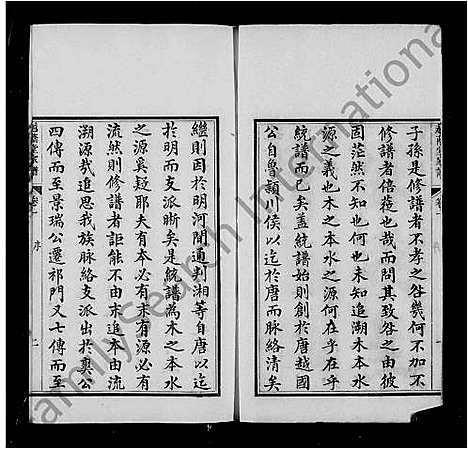 子孫是修譜者不孝之咎幾何不加不
修譜者倍蓰也哉而問其致咎之由彼
固茫然不知也何也未知追溯木本水
源之義也木之本水之源何在乎在乎
統譜而已矣蓋統譜始則創於唐越國
公自魯潁川侯以迄於唐而脉絡清矣
繼則因於明河間通判湘等自唐以迄
於明而支派晰矣是統譜為木之本水
之源奚疑耶夫有本必有末有源必有
流然則修譜者詎能不由末追本由流
溯源哉追思我族脉絡支派出於奧公
四傳而至景瑞公遷祁門又七傳而至
卷一
序
二
卷一
FamilySearch International